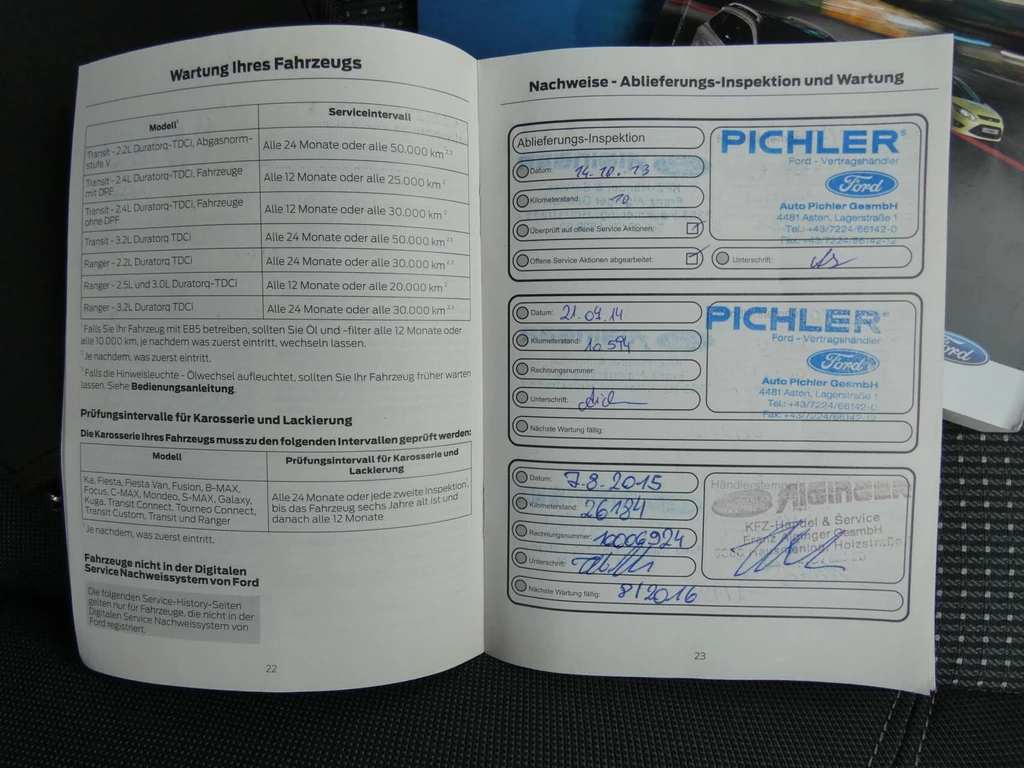 Wartung Ihres Fahrzeugs
Modell¹ Serviceintervall
Transit - 2.2L Duratorq-TDCi, Abgasnorm-
stufe V Alle 24 Monate oder alle 50.000 km²,³
Transit - 2.4L Duratorq-TDCi, Fahrzeuge
mit DPF Alle 12 Monate oder alle 25.000 km²
Transit - 2.4L Duratorq-TDCi, Fahrzeuge
ohne DPF Alle 12 Monate oder alle 30.000 km²
Transit - 3.2L Duratorq TDCi Alle 24 Monate oder alle 50.000 km²,³
Ranger - 2.2L Duratorq TDCi Alle 24 Monate oder alle 30.000 km²,³
Ranger - 2.5L und 3.0L Duratorq-TDCi Alle 12 Monate oder alle 20.000 km²
Ranger - 3.2L Duratorq TDCi Alle 24 Monate oder alle 30.000 km²,³
¹Falls Sie Ihr Fahrzeug mit E85 betreiben, sollten Sie Öl und -filter alle 12 Monate oder
alle 10.000 km, je nachdem was zuerst eintritt, wechseln lassen.
²Je nachdem, was zuerst eintritt.
³Falls die Hinweisleuchte - Ölwechsel aufleuchtet, sollten Sie Ihr Fahrzeug früher warten
lassen. Siehe Bedienungsanleitung.
Prüfungsintervalle für Karosserie und Lackierung
Die Karosserie Ihres Fahrzeugs muss zu den folgenden Intervallen geprüft werden:
Modell Prüfungsintervall für Karosserie und
Lackierung
Ka, Fiesta, Fiesta Van, Fusion, B-MAX,
Focus, C-MAX, Mondeo, S-MAX, Galaxy,
Kuga, Transit Connect, Tourneo Connect,
Transit Custom, Transit und Ranger
Alle 24 Monate oder jede zweite Inspektion¹,
bis das Fahrzeug sechs Jahre alt ist und
danach alle 12 Monate
¹Je nachdem, was zuerst eintritt.
Fahrzeuge nicht in der Digitalen
Service Nachweissystem von Ford
Die folgenden Service-History-Seiten
gelten nur für Fahrzeuge, die nicht in der
Digitalen Service Nachweissystem von
Ford registriert.
22
Nachweise - Ablieferungs-Inspektion und Wartung
Ablieferungs-Inspektion
Datum: 14.10.13
Kilometerstand: 10
Überprüft auf offene Service Aktionen:
Offene Service Aktionen abgearbeitet:
PICHLER
Ford - Vertragshändler
Ford
Auto Pichler GesmbH
4481 Asten, Lagerstraße 1
Tel.: +43/7224/66142-0
Fax: +43/7224/66142-12
Unterschrift:
Datum: 21.09.14
Kilometerstand: 10.594
Rechnungsnummer:
Unterschrift:
Nächste Wartung fällig:
PICHLER
Ford - Vertragshändler
Ford
Auto Pichler GesmbH
4481 Asten, Lagerstraße 1
Tel.: +43/7224/66142-0
Fax: +43/7224/66142-12
Datum: 7.8.2015
Kilometerstand: 26184
Rechnungsnummer: 10006924
Unterschrift:
Nächste Wartung fällig: 8/2016
Händlerstempel
KFZ-Handel & Service
Franz Aiginger GesmbH
Hausmening, Holzstraße
23
Ford